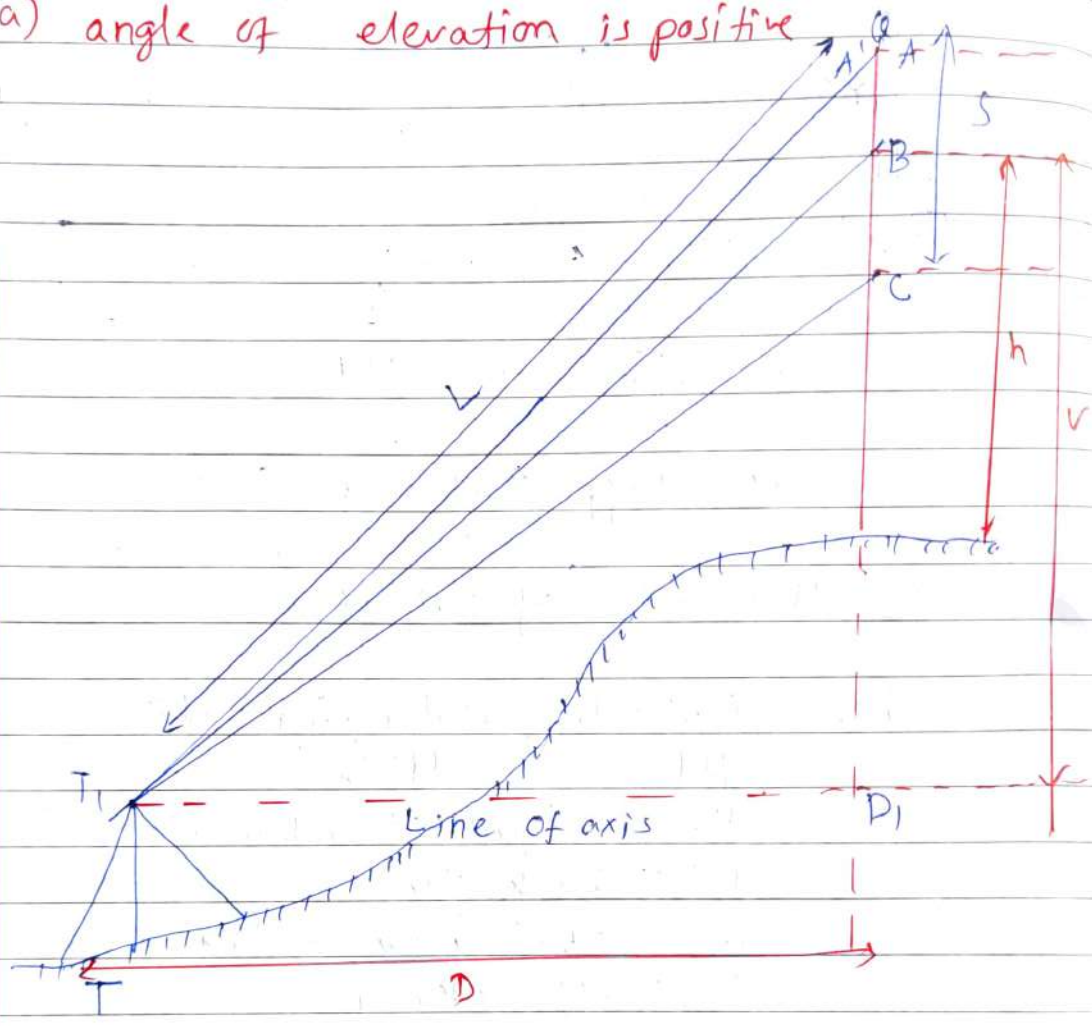 a) angle of elevation is positive
Q
A' A
S
B
C
h
L
V
T1
Line of axis
D1
D
T